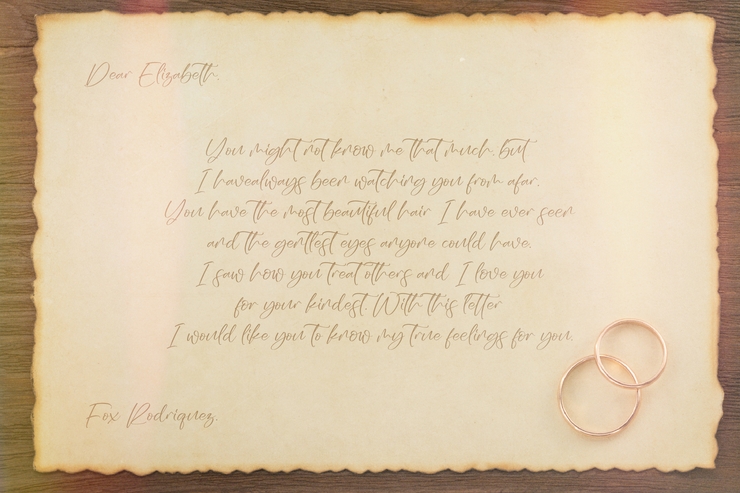 Dear Elizabeth,
You might not know me that much, but
I havealways been watching you from afar.
You have the most beautiful hair I have ever seen
and the gentlest eyes anyone could have.
I saw how you treat others and I love you
for your kindest. With this letter
I would like you to know my true feelings for you.
Fox Rodriquez.